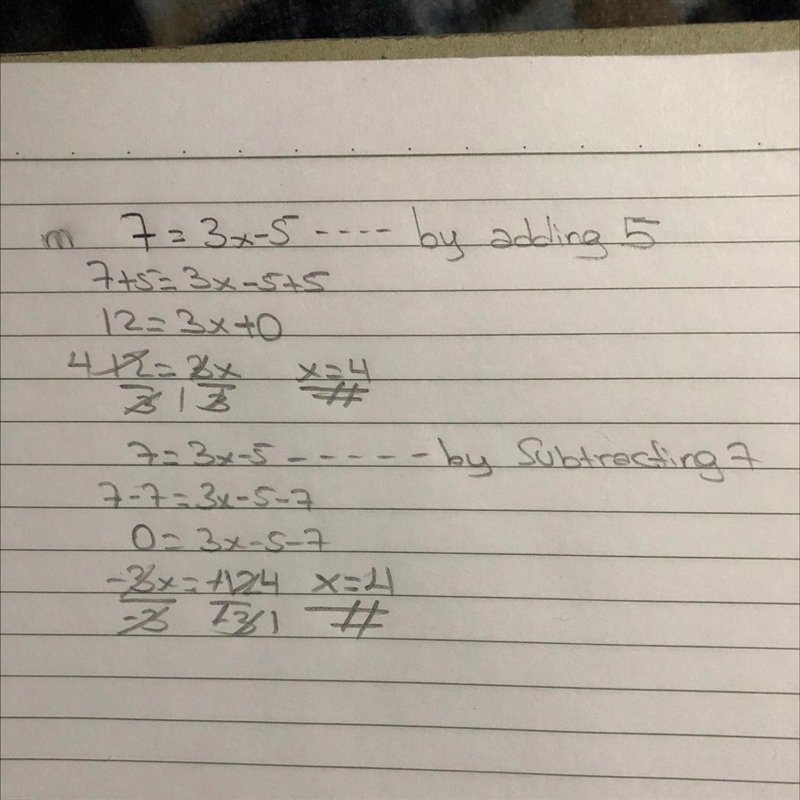 m 7 = 3x-5 ---- by adding 5
7+5=3x-5+5
12=3x+0
4 12 = 3x x=4
3 1 3
7=3x-5 ----- by Subtracting 7
7-7=3x-5-7
0=3x-5-7
-3x = +12 4 x=4
-3 -3 1